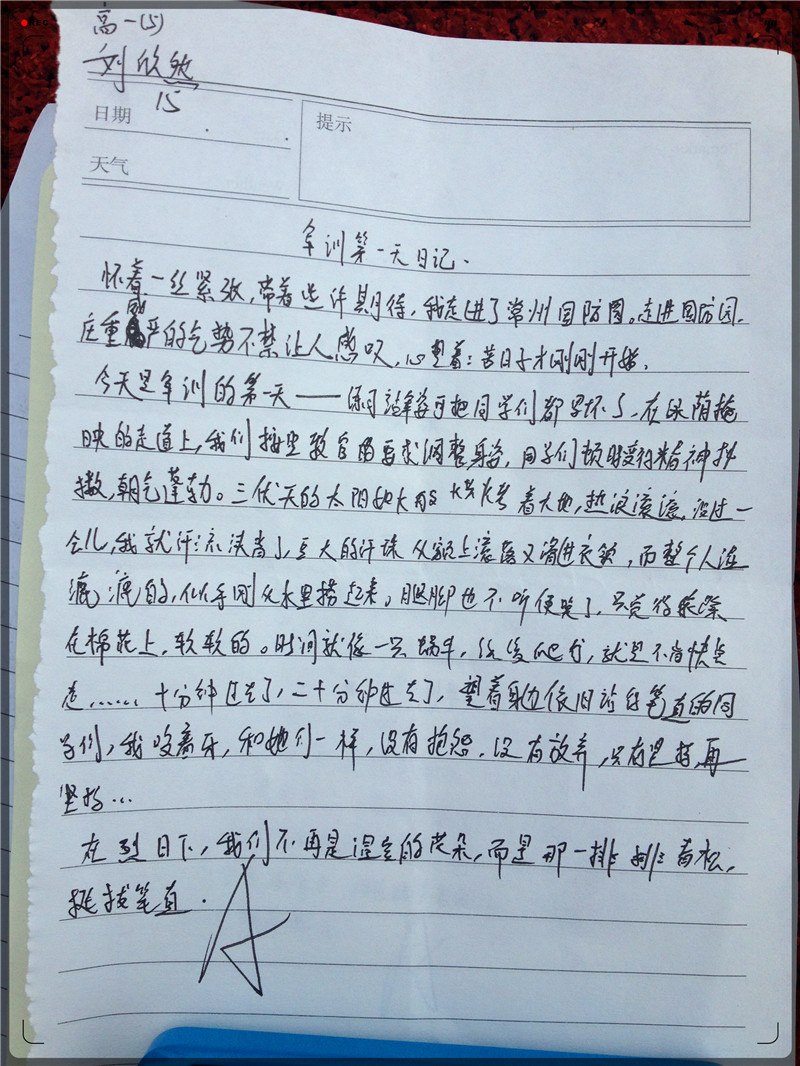 高一(5)
刘欣然
15
日期
提示
天气
军训第一天日记.
怀着一丝紧张,带着些许期待,我走进了常州国防园。走进国防园,
庄重威严的气势不禁让人感叹,心里想着:苦日子才刚刚开始.
今天是军训的第一天——练习站军姿可把同学们都累坏了.在绿荫掩
映的走道上,我们按照教官的要求调整身姿,同学们顿时变得精神抖
擞,朝气蓬勃。三伏天的太阳 烘烤着大地,热浪滚滚,没过一
会儿,我就汗流浃背了,豆大的汗珠从额上滚落又滑进衣领,而整个人湿
漉漉的,似乎刚从水里捞起来。腿脚也不听使唤了,只觉得踩
在棉花上,软软的。时间就像一只蜗牛,缓缓爬行,就是不肯快点
走……十分钟过去了,二十分钟过去了,望着身边依旧站得笔直的同
学们,我咬着牙,和她们一样,没有抱怨.没有放弃,只有坚持,再
坚持…
在烈日下,我们不再是温室的花朵,而是那一排排青松,
挺拔笔直.
A